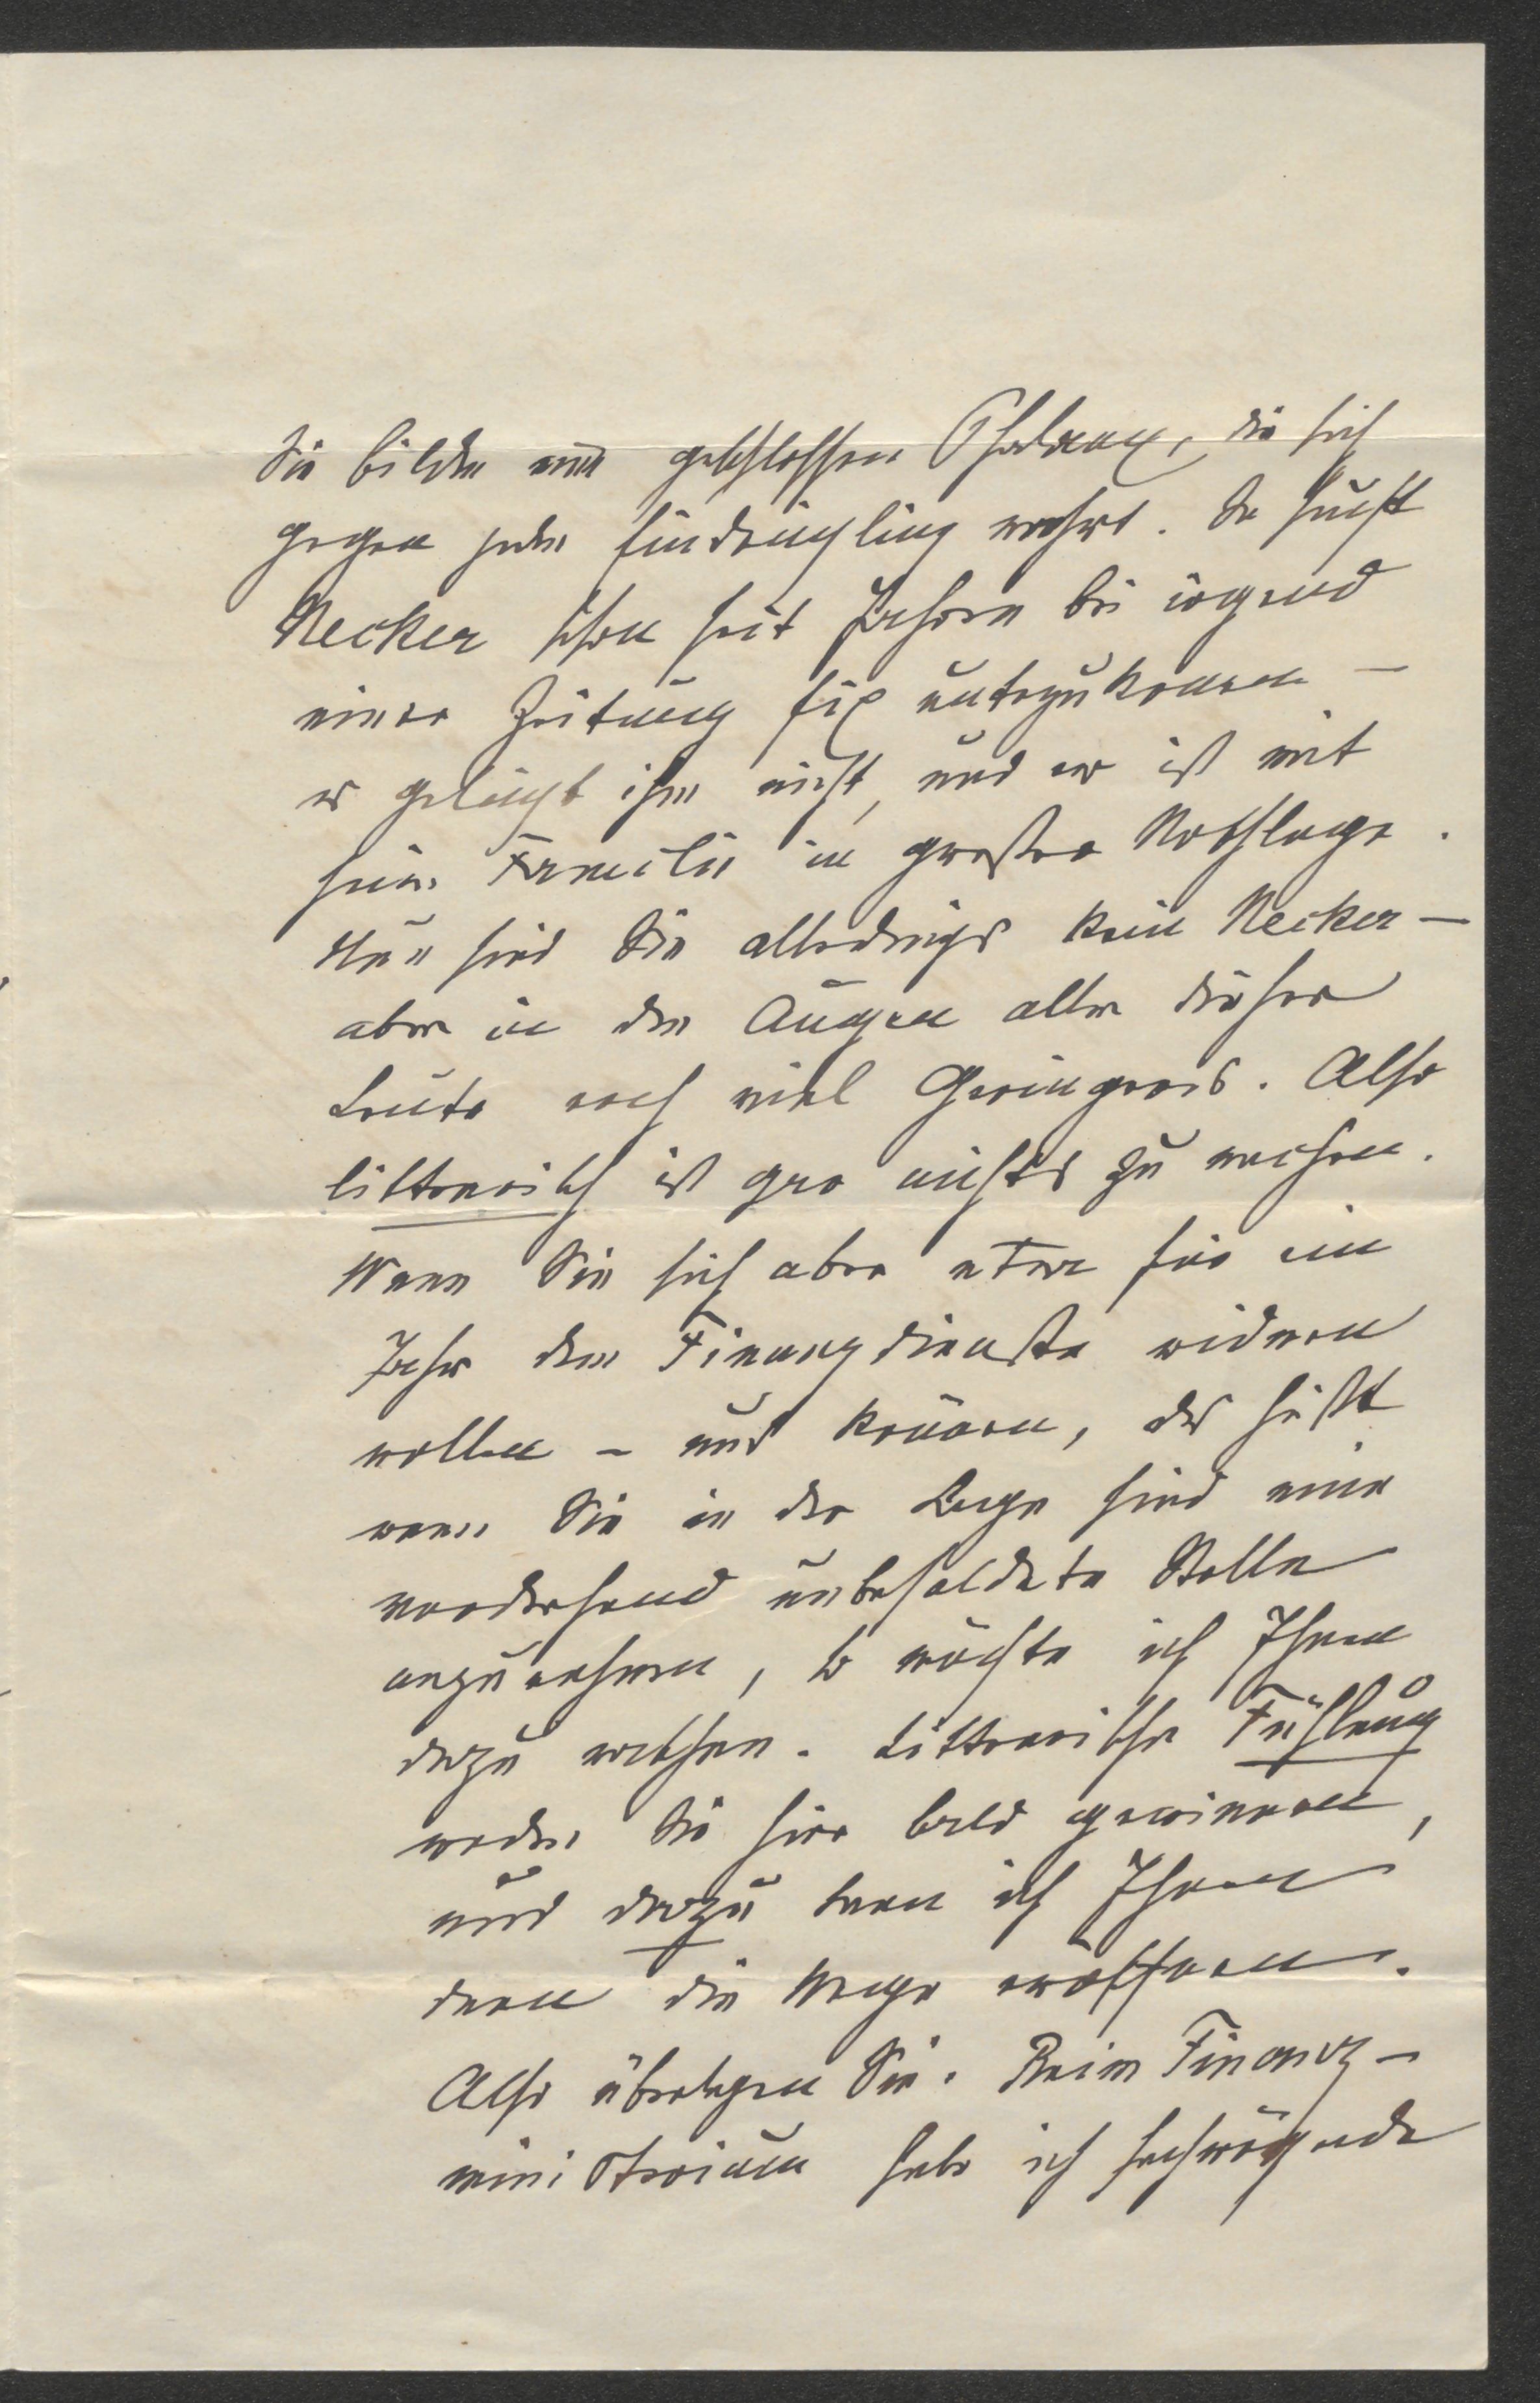 Sie bilden eine geschlossene Phalanx, die sich
gegen jeden Eindringling wehrt. So sucht
Necker schon seit Jahren bei irgend
einer Zeitung fix unterzukommen –
es gelingt ihm nicht, und er ist mit
seiner Familie in großer Nothlage.
Nun sind Sie allerdings kein Necker –
aber in den Augen aller dieser
Leute noch viel Geringeres. Also
litterarisch ist gar nichts zu machen.
Wenn Sie sich aber etwa für ein
Jahr dem Finanzdienste widmen
wollen – und können, das heißt
wenn Sie in der Lage sind eine
vorderhand unbesoldete Stelle
anzunehmen, so möchte ich Ihnen
dazu rathen. Litterarische Fühlung
werden Sie hier bald gewinnen,
und dazu kann ich Ihnen
dann die Wege eröffnen.
Also überlegen Sie. Beim Finanz-
ministerium habe ich schwägende